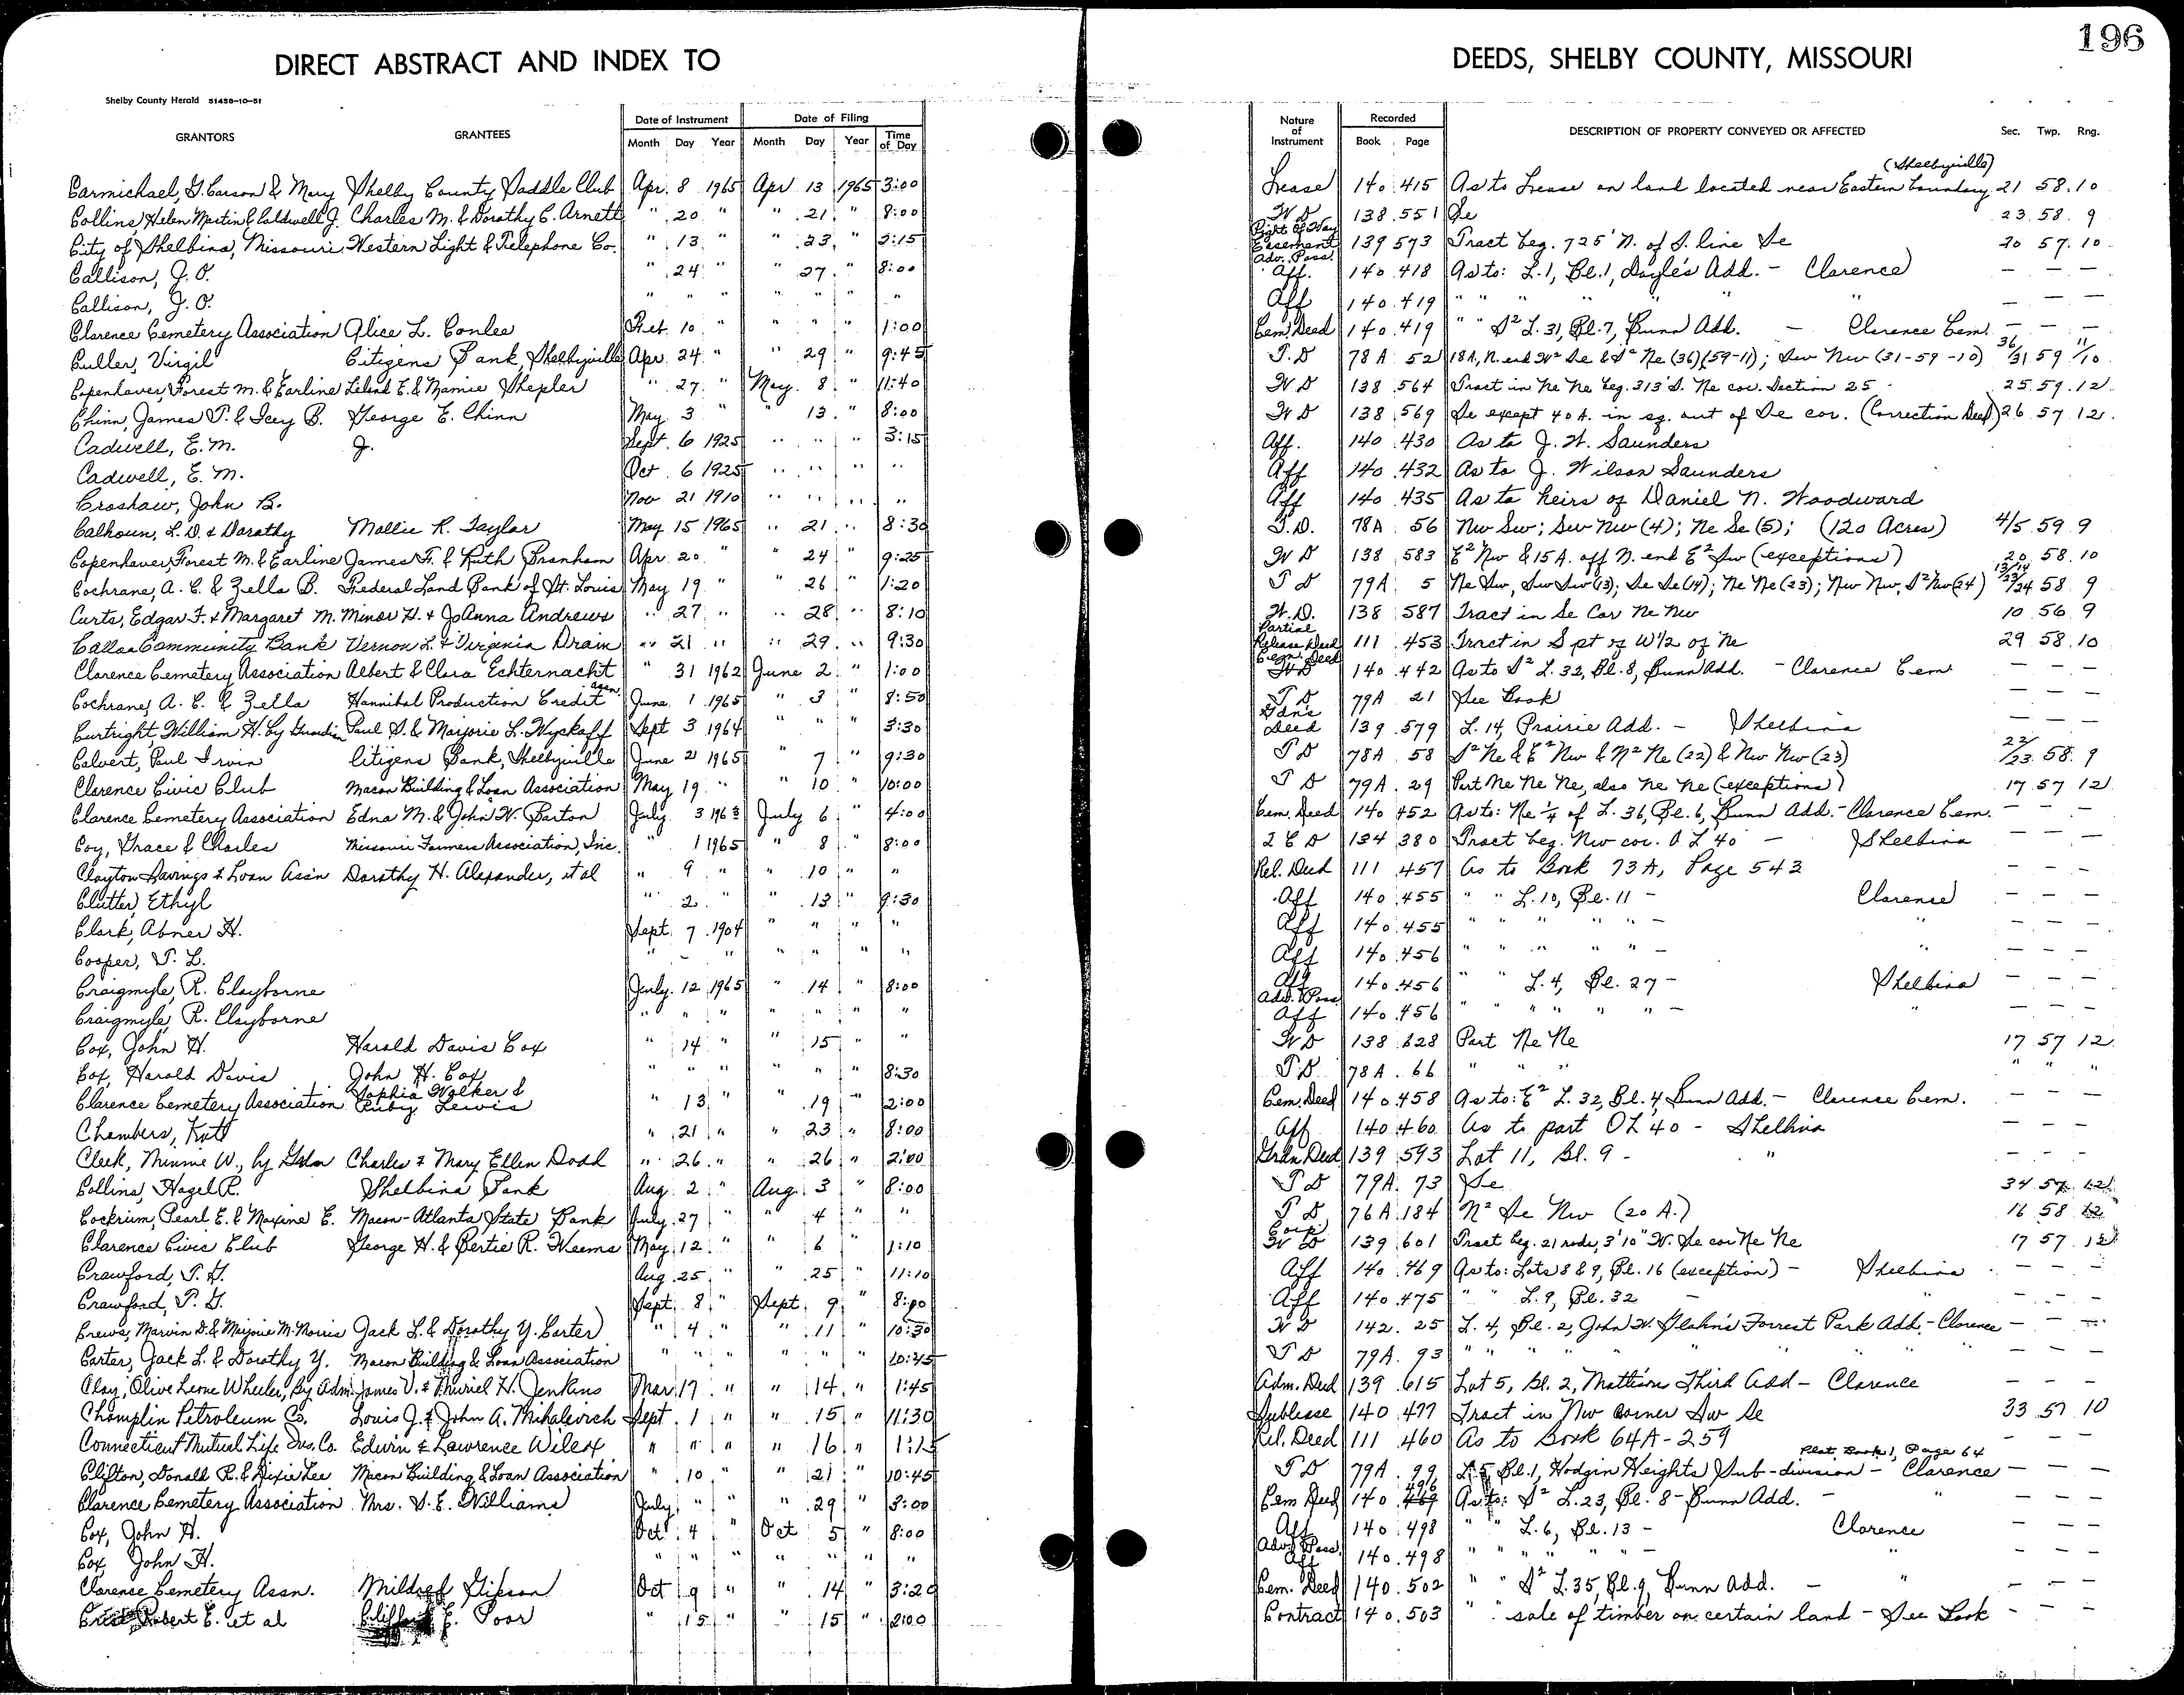 196
DIRECT ABSTRACT AND INDEX TO DEEDS, SHELBY COUNTY, MISSOURI
Shelby County Herald 51458-10-51
GRANTORS GRANTEES Date of Instrument Month Day Year Date of Filing Month Day Year Time of Day Nature of Instrument Recorded Book Page DESCRIPTION OF PROPERTY CONVEYED OR AFFECTED Sec. Twp. Rng.
(Shelbyville)
Carmichael, G. Carson & Mary Shelby County Saddle Club Apr. 8 1965 Apr 13 1965 3:00 Lease 140 415 As to Lease on land located near Eastern boundary 21 58 10
Collins, Helen Martin & Caldwell J. Charles M. & Dorothy C. Arnett " 20 " " 21 " 8:00 W D 138 551 Se 23 58 9
City of Shelbina, Missouri Western Light & Telephone Co. " 13 " " 23 " 3:15 Right of Way Easement 139 573 Tract beg. 725' N. of S. line Se 20 57 10
Callison, J. O. " 24 " " 27 " 8:00 Adv. Poss. Aff. 140 418 As to: L. 1, Bl. 1, Doyle's Add. - Clarence — — —
Callison, J. O. " " " " " " " Aff 140 419 " " " " " " — — —
Clarence Cemetery Association Alice L. Conlee Feb. 10 " " " " 1:00 Cem. Deed 140 419 " " S² L. 31, Bl. 7, Bunn Add. — Clarence Cem. — — —
Culler, Virgil Citizens Bank, Shelbyville Apr. 24 " " 29 " 9:45 T. D 78A 52 18A, N. end W² Se & S² Ne (36)(59-11); Sw Nw (31-59-10) 36/31 59 11/10
Copenhaver, Forest M. & Earline Leland E. & Mamie Shepler " 27 " May 8 " 11:40 W D 138 564 Tract in Ne Ne beg. 313' S. Ne cor. Section 25 25 59 12
Chinn, James T. & Icey B. George E. Chinn May 3 " " 13 " 8:00 W D 138 569 Se except 40 A. in sq. out of Se cor. (Correction Deed) 26 57 12
Cadwell, E. M. J. Sept. 6 1925 " " " 3:15 Aff. 140 430 As to J. W. Saunders
Cadwell, E. M. Oct 6 1925 " " " " Aff 140 432 As to J. Wilson Saunders
Croshaw, John B. Nov 21 1910 " " " " Aff 140 435 As to heirs of Daniel N. Woodward
Calhoun, L. D. & Dorathy Mollie R. Taylor May 15 1965 " 21 " 8:30 T. D. 78A 56 Nw Sw; Sw Nw (4); Ne Se (5); (120 Acres) 4/5 59 9
Copenhaver, Forest M. & Earline James F. & Ruth Branham Apr. 20 " " 24 " 9:25 W D 138 583 E² Nw & 15 A. off N. end E² Sw (exceptions) 20 58 10
Cochrane, A. C. & Zella B. Federal Land Bank of St. Louis May 19 " " 26 " 1:20 T D 79A 5 Ne Sw, Sw Sw (13); Se Se (14); Ne Ne (23); Nw Nw, S² Nw (24) 13/14 23/24 58 9
Curts, Edgar F. & Margaret M. Minor H. & JoAnna Andrews " 27 " " 28 " 8:10 W. D. 138 587 Tract in Se Cor Ne Nw 10 56 9
Callao Community Bank Vernon L. & Virginia Drain " 21 " " 29 " 9:30 Partial Release Deed 111 453 Tract in S pt of W1/2 of Ne 29 58 10
Clarence Cemetery Association Albert & Clara Echternacht " 31 1962 June 2 " 1:00 Cem. Deed 140 442 As to S² L. 32, Bl. 8, Bunn Add. - Clarence Cem — — —
Cochrane, A. C. & Zella Hannibal Production Credit assn. June 1 1965 " 3 " 8:50 T D 79A 21 See Book — — —
Curtright, William H. by Guardian Paul S. & Marjorie L. Wyckoff Sept 3 1964 " " " 3:30 Gdn's Deed 139 579 L. 14, Prairie Add. - Shelbina — — —
Calvert, Paul Irvin Citizens Bank, Shelbyville June 2 1965 " 7 " 9:30 T D 78A 58 S² Ne & E² Nw & N² Ne (22) & Nw Nw (23) 22/23 58 9
Clarence Civic Club Macon Building & Loan Association May 19 " " 10 " 10:00 T D 79A 29 Part Ne Ne Ne, also Ne Ne (exceptions) 17 57 12
Clarence Cemetery Association Edna M. & John W. Barton July 3 1963 July 6 " 4:00 Cem. Deed 140 452 As to: Ne ¼ of L. 36, Bl. 6, Bunn Add. - Clarence Cem. — — —
Coy, Grace & Charles Missouri Farmers Association, Inc. " 1 1965 " 8 " 8:00 2 C D 134 380 Tract beg. Nw cor. O L 40 — Shelbina — — —
Clayton Savings & Loan Ass'n Dorathy H. Alexander, et al " 9 " " 10 " " Rel. Deed 111 457 As to Book 73A, Page 543 — — —
Clutter, Ethyl " 2 " " 13 " 9:30 Aff 140 455 " " L. 10, Bl. 11 - Clarence — — —
Clark, Abner H. Sept. 7 1904 " " " " Aff 140 455 " " " " " — " — — —
Cooper, T. L. " - " " " " " Aff 140 456 " " " " " — " — — —
Craigmyle, R. Clayborne July 12 1965 " 14 " 8:00 Aff 140 456 " " L. 4, Bl. 27 - Shelbina — — —
Craigmyle, R. Clayborne " " " " " " " Adv. Poss Aff 140 456 " " " " " — " — — —
Cox, John H. Harold Davis Cox " 14 " " 15 " " W D 138 628 Part Ne Ne 17 57 12
Cox, Harold Davis John H. Cox " " " " " " 8:30 T. D. 78A 66 " " " " " "
Clarence Cemetery Association Sophia Walker & Ruby Lewis " 13 " " 19 " 2:00 Cem. Deed 140 458 As to: E² L. 32, Bl. 4, Bunn Add. - Clarence Cem. — — —
Chambers, Kutt " 21 " " 23 " 8:00 Aff 140 460 As to part OL 40 - Shelbina — — —
Cleek, Minnie W., by Gdn Charles & Mary Ellen Dodd " 26 " " 26 " 2:00 Grdn Deed 139 593 Lot 11, Bl. 9 - " — — —
Collins, Hazel R. Shelbina Bank Aug 2 " Aug. 3 " 8:00 T D 79A 73 Se 34 57 12
Cockrium, Pearl E. & Maxine E. Macon-Atlanta State Bank July 27 " " 4 " " T D 76A 184 N² Se Nw (20 A.) 16 58 12
Clarence Civic Club George H. & Bertie R. Weems May 12 " " 6 " 1:10 Corp W D 139 601 Tract beg. 21 rods, 3'10" W. Se cor Ne Ne 17 57 12
Crawford, T. G. Aug 25 " " 25 " 11:10 Aff 140 469 As to: Lots 8 & 9, Bl. 16 (exception) - Shelbina — — —
Crawford, T. G. Sept. 8 " Sept. 9 " 8:00 Aff 140 475 " " L. 9, Bl. 32 — " — — —
Crews, Marvin D. & Marjorie M. Norris Jack L. & Dorothy Y. Carter " 4 " " 11 " 10:30 W D 142 25 L. 4, Bl. 2, John W. Glahn's Forrest Park Add. - Clarence — — —
Carter, Jack L. & Dorothy Y. Macon Building & Loan Association " " " " " " 10:45 T D 79A 93 " " " " " " — — —
Clay, Olive Leone Wheeler, By Adm James V. & Muriel H. Jenkins Mar 17 " " 14 " 1:45 Adm. Deed 139 615 Lot 5, Bl. 2, Mattison Third Add - Clarence — — —
Champlin Petroleum Co. Louis J. & John A. Mihalevich Sept. 1 " " 15 " 11:30 Sublease 140 477 Tract in Nw corner Sw Se 33 57 10
Connecticut Mutual Life Ins. Co. Edwin & Lawrence Wilcox " " " " 16 " 1:15 Rel. Deed 111 460 As to Book 64A-259 — — —
Plat Book 1, Page 64
Clifton, Donald R. & Dixie Lee Macon Building & Loan Association " 10 " " 21 " 10:45 T D 79A 99 L. 5 Bl. 1, Hodgin Heights Sub-division - Clarence — — —
Clarence Cemetery Association Mrs. S. E. Williams July " " " 29 " 3:00 Cem Deed 140 496 As to: S² L. 23, Bl. 8 - Bunn Add. — " — — —
Cox, John H. Oct 4 " Oct 5 " 8:00 Aff 140 498 " " L. 6, Bl. 13 - Clarence — — —
Cox, John H. " " " " " " " Adv. Poss. Aff 140 498 " " " " " — " — — —
Clarence Cemetery Assn. Mildred Gipson Oct 9 " " 14 " 3:20 Cem. Deed 140 502 " " S² L. 35, Bl. 9, Bunn Add. — " — — —
Robert E. et al Clifford E. Poor " 15 " " 15 " 8:00 Contract 140 503 " " sale of timber on certain land - See Book — — —